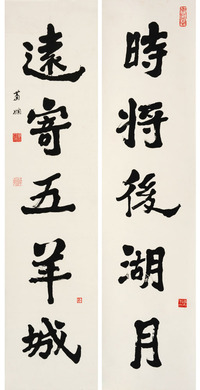 時將後湖月
遠寄五羊城